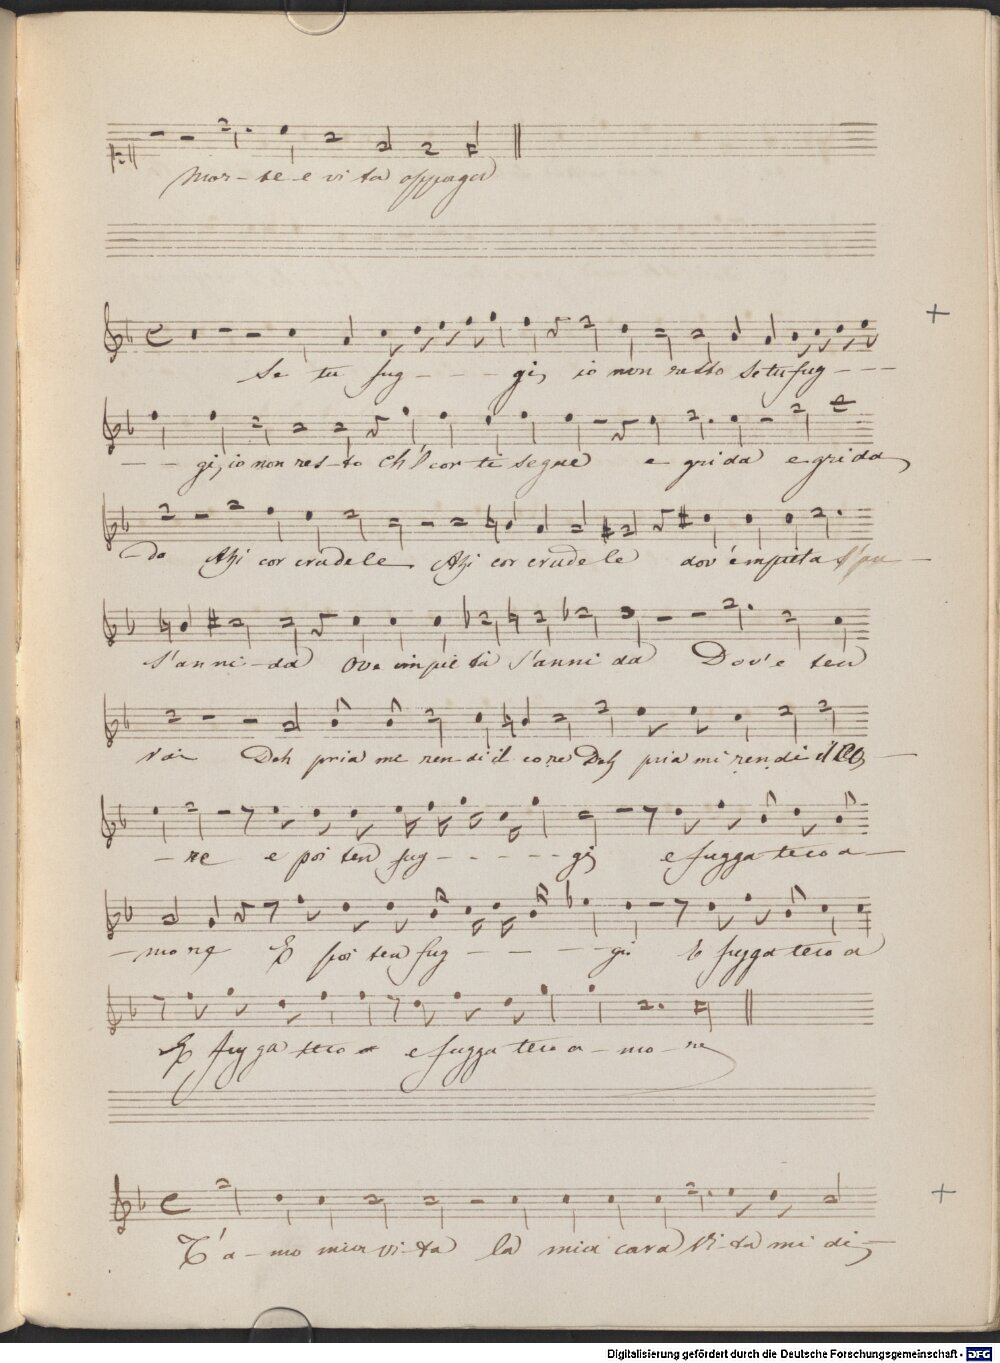 Mor - te - e vi ta appaga
Se tu fug - - - gi, io non resto Se tu fug - - -
- - gi, io non res - to Ch'l cor te segue e grida e grida
- do Ahi cor crudele Ahi cor crudele dov'empieta
S'an ni - da Ove empie tà S'anni da Dov'e teu
Deh pria me rendi il core Deh pria mi rendi il Co -
- re e poi ten fug - - - - - gi e fugga teco a -
- more E poi ten fug - - - - gi E fugga teco a
E fugga teco a e fugga teco a - mo - re
T'a - mo mia vi - ta la mia cara Vi - ta mi di -
Digitalisierung gefördert durch die Deutsche Forschungsgemeinschaft - DFG